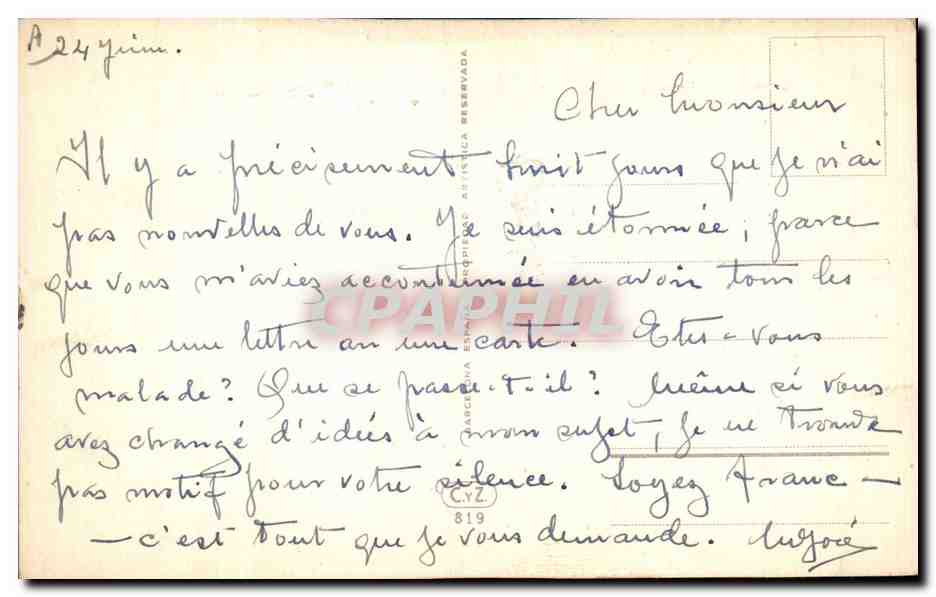 A 24 Juin.
Cher Monsieur
Il y a précisement huit jours que je n'ai
pas nouvelles de vous. Je suis étonnée, parce
que vous m'aviez accoutumée en avoir tous les
jours une lettre ou une carte. Etes-vous
malade? Que se passe-t-il? Même si vous
avez changé d'idées à mon sujet, je ne trouve
pas motif pour votre silence. Soyez franc —
— c'est tout que je vous demande.
BARCELONA ESPAÑA PROPIEDAD ARTISTICA RESERVADA
CPAPHIL
C.yZ.
819